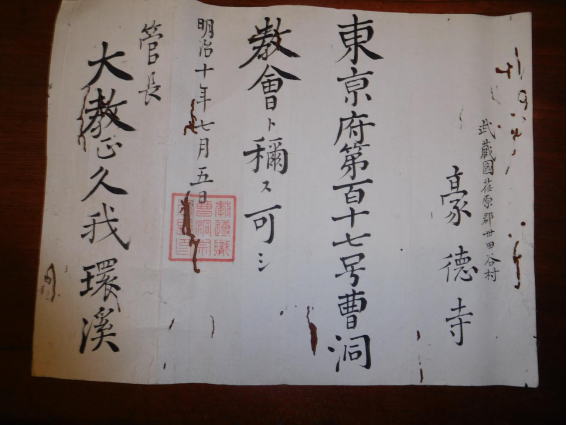 武蔵國荏原郡世田谷村
豪德寺
東京府第百十七号曹洞
教會ト稱ス可シ
明治十年七月五日
管長
大教正久我環溪